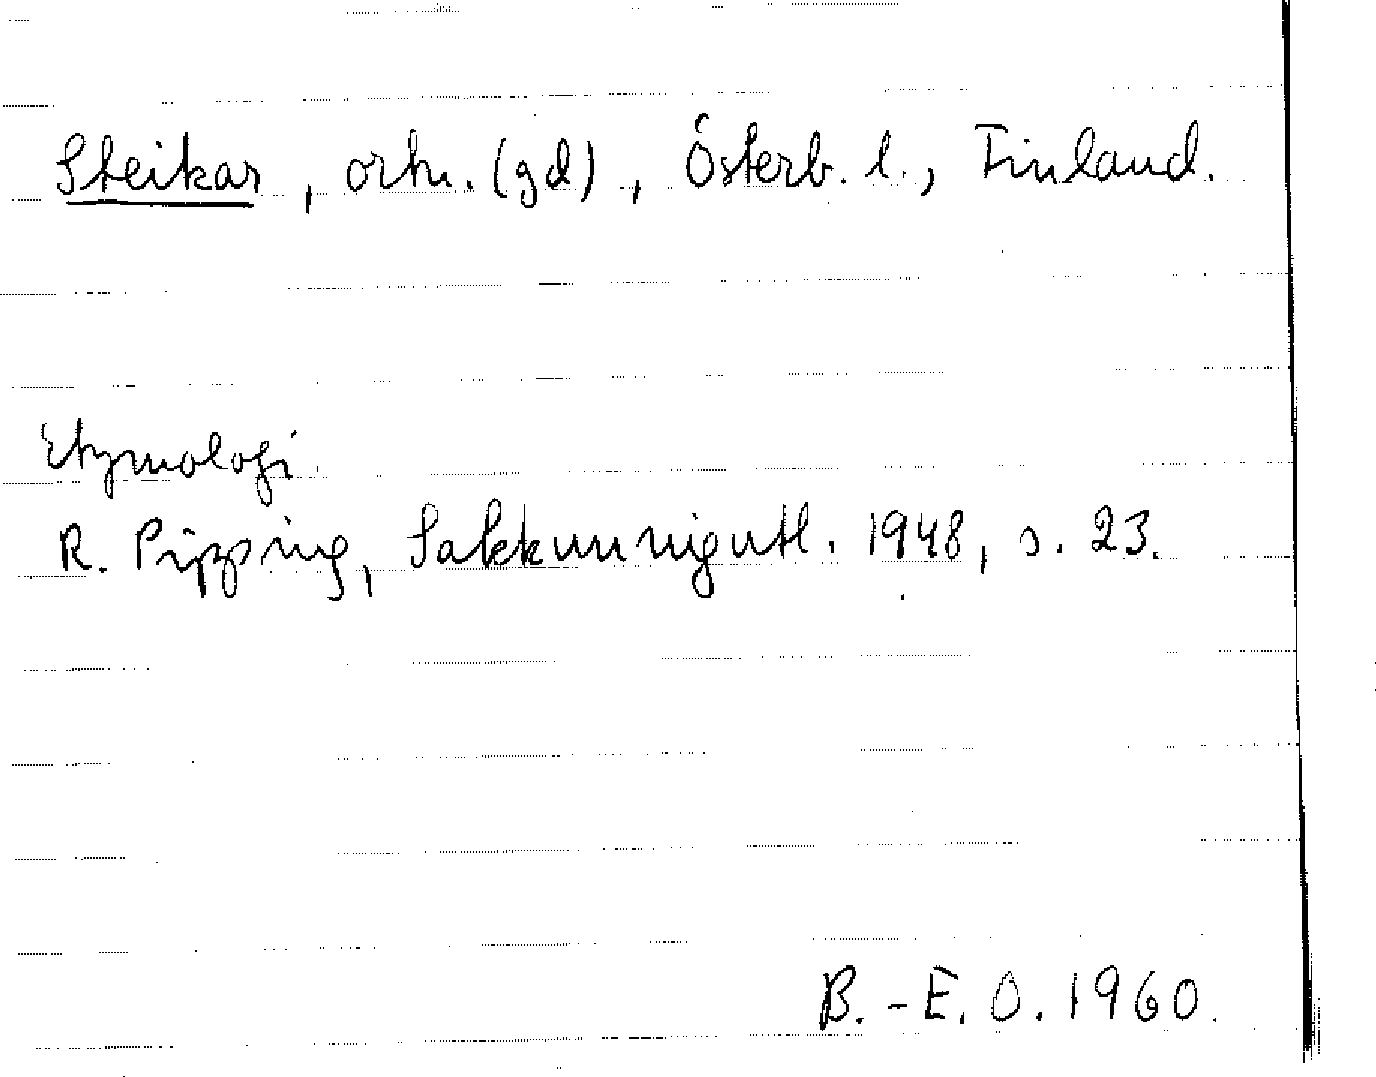 Steikar, ortn. (gd), Österb. l., Finland.
Etymologi
R. Pipping, Sakkunnigutl. 1948, s. 23.
B.-E. O. 1960.